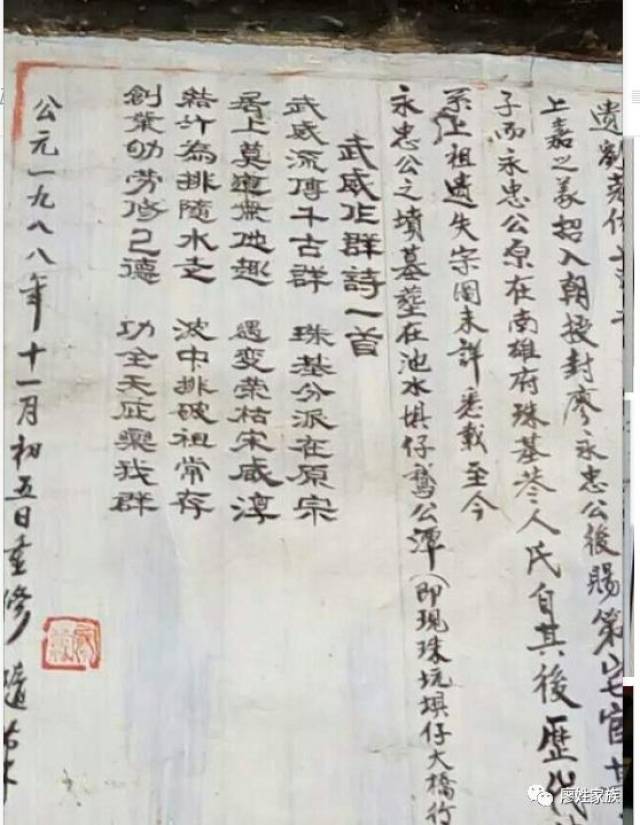 遺
上嘉之義招入朝授封廖永忠公後賜第
子而永忠公原在南雄府珠基巷人氏自其後歷代
系上祖遺失宗圖未詳悉載至今
永忠公之墳墓塟在池水埧仔鵞公潭(即現珠坑埧仔大橋竹
武威化群詩一首
武威流傳千古群 珠基分派在原宗
居上莫道無他趣 遇变荣枯宋咸淳
結汁為排隨水走 波中排破祖常存
創業劬劳修己德 功全天庇我群
公元一九八八年十一月初五日重修
廖姓家族